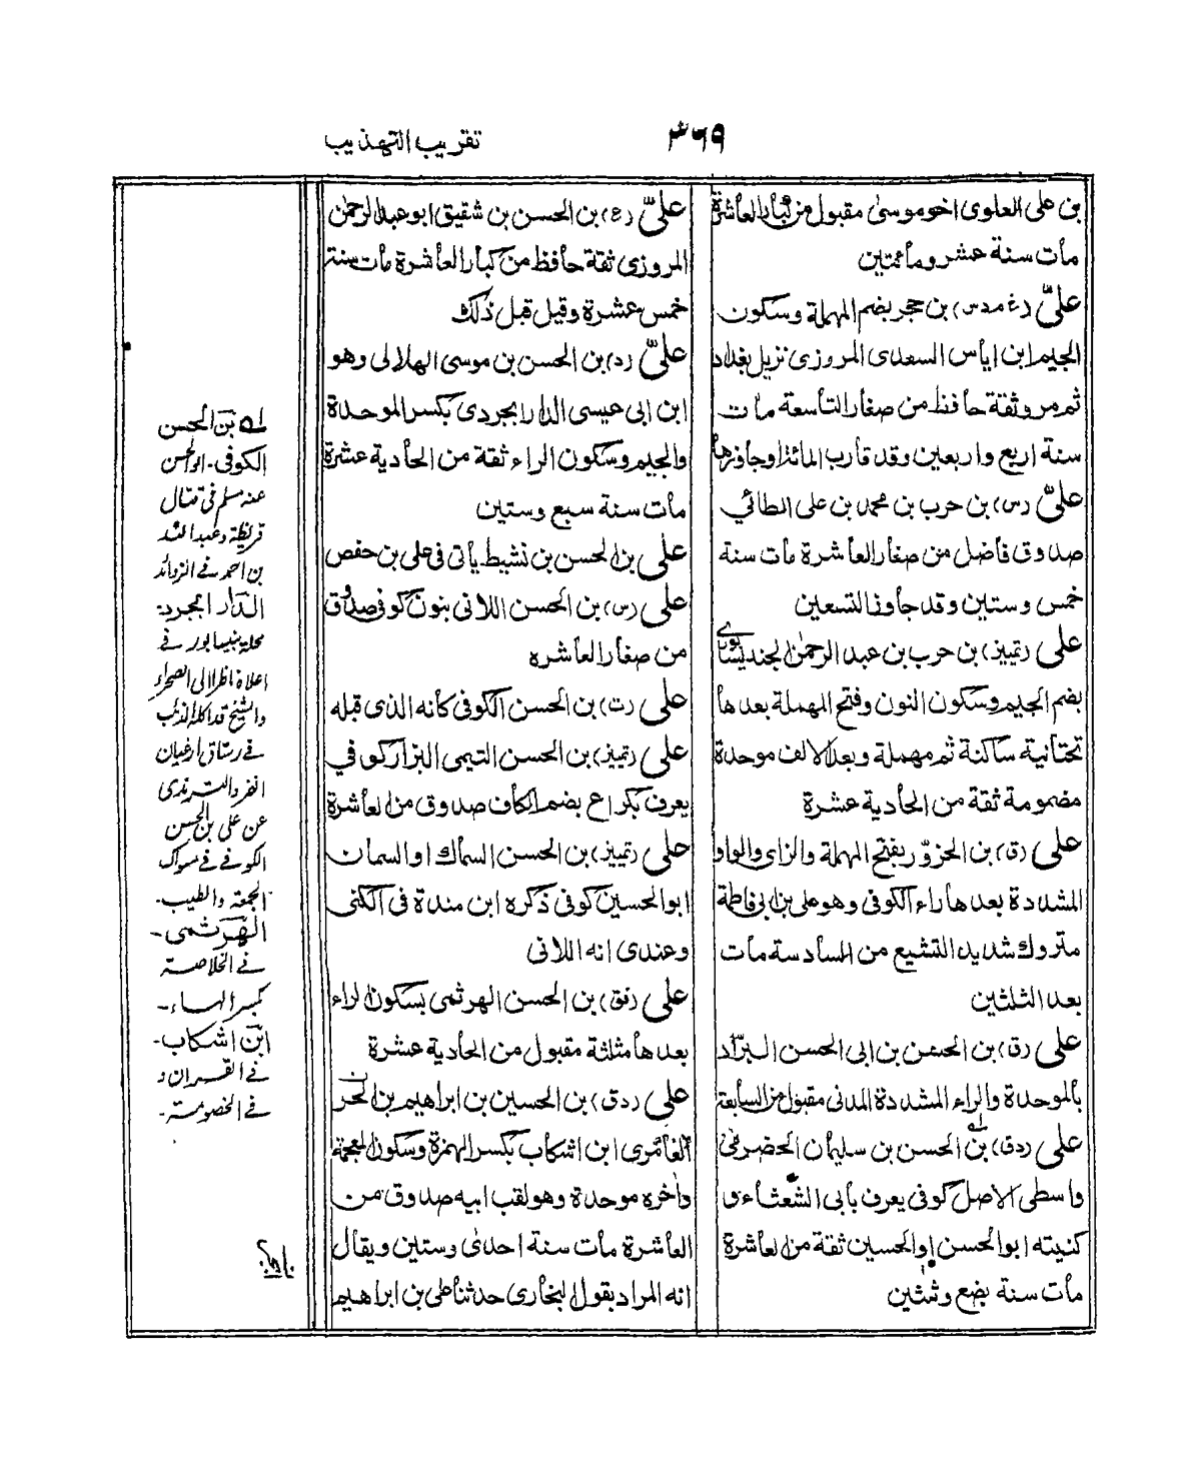 ٣٦٩
تقريب التهذيب
بن على العلوى اخو موسى مقبول من كبار العاشرة
مأت سنة عشر ومائتين
علىّ (خ م د س) بن حجر بضم المهملة وسكون
الجيم ابن اياس السعدى المروزى نزيل بغداد
ثم مرو ثقة حافظ من صغار التأسعة مات
سنة اربع واربعين وقد قارب المائة او جاوزها
علىّ (س) بن حرب بن محمد بن على الطائي
صدوق فاضل من صغار العاشرة مأت سنة
خمس وستين وقد جاوز التسعين
على (تمييز) بن حرب بن عبد الرحمٰن الجنديسابورى
بضم الجيم وسكون النون وفتح المهملة بعدها
تحتانية ساكنة ثم مهملة وبعد الالف موحدة
مضمومة ثقة من الحادية عشرة
على (ق) بن الحزوّر بفتح المهملة والزاى والواو
المشددة بعدها راء الكوفى وهو على بن ابى فاطمة
متروك شديد التشيع من السادسة مأت
بعد الثلثين
على (ق) بن الحسن بن ابى الحسن البرّاد
بالموحدة والراء المشددة المدنى مقبول من السابعة
على (د ق) بن الحسن بن سليمان الحضرمى
واسطى الاصل كوفى يعرف بأبى الشعثاء و
كنيته ابو الحسن او الحسين ثقة من العاشرة
مأت سنة بضع وثلثين
علىّ (ع) بن الحسن بن شقيق ابو عبد الرحمٰن
المروزى ثقة حأفظ من كبار العاشرة مأت سنة
خمس عشرة وقيل قبل ذلك
علىّ (د) بن الحسن بن موسى الهلالى وهو
ابن ابى عيسى الدارابجردى بكسر الموحدة
والجيم وسكون الراء ثقة من الحادية عشرة
مأت سنة سبع وستين
على بن الحسن بن نشيط يأتى فى على بن حفص
على (س) بن الحسن اللانى بنون كوفى صدوق
من صغار العاشره
على (ت) بن الحسن الكوفى كأنه الذى قبله
على (تمييز) بن الحسن التيمى البزاز كوفي
يعرف بكراع بضم الكاف صدوق من العاشرة
على (تمييز) بن الحسن السماك او السمان
ابو الحسين كوفى ذكره ابن مندة فى الكنى
وعندى انه اللانى
على (فق) بن الحسن الهرثمى بسكون الراء
بعدها مثلثة مقبول من الحادية عشرة
على (د ق) بن الحسين بن ابراهيم بن الحر
العامرى ابن اشكاب بكسر الهمزة وسكون المعجمة
واخره موحدة وهو لقب ابيه صدوق من
العاشرة مأت سنة احدى وستين ويقال
انه المراد بقول البخارى حدثنا على بن ابراهيم
لـه بن الحسن
الكوفى- ابو الحسن
عنه مسلم فى قتال
قريظة وعبد الله
بن احمد فے الزوائد
الدّارابجردى:
محلة بنيسابور فے
اعلاه ناظرا الى الصحراء
والشيخ قد اكله الذئب
فے رستاق ارغيان
انفرد الترمذى
عن على بن الحسن
الكوفے فے سواك
الجمعة والطيب-
الهَرثمى-
فے الخلاصة
بكسر الهاء-
ابن اشكاب-
فے القرآن و
فے الخصومة-